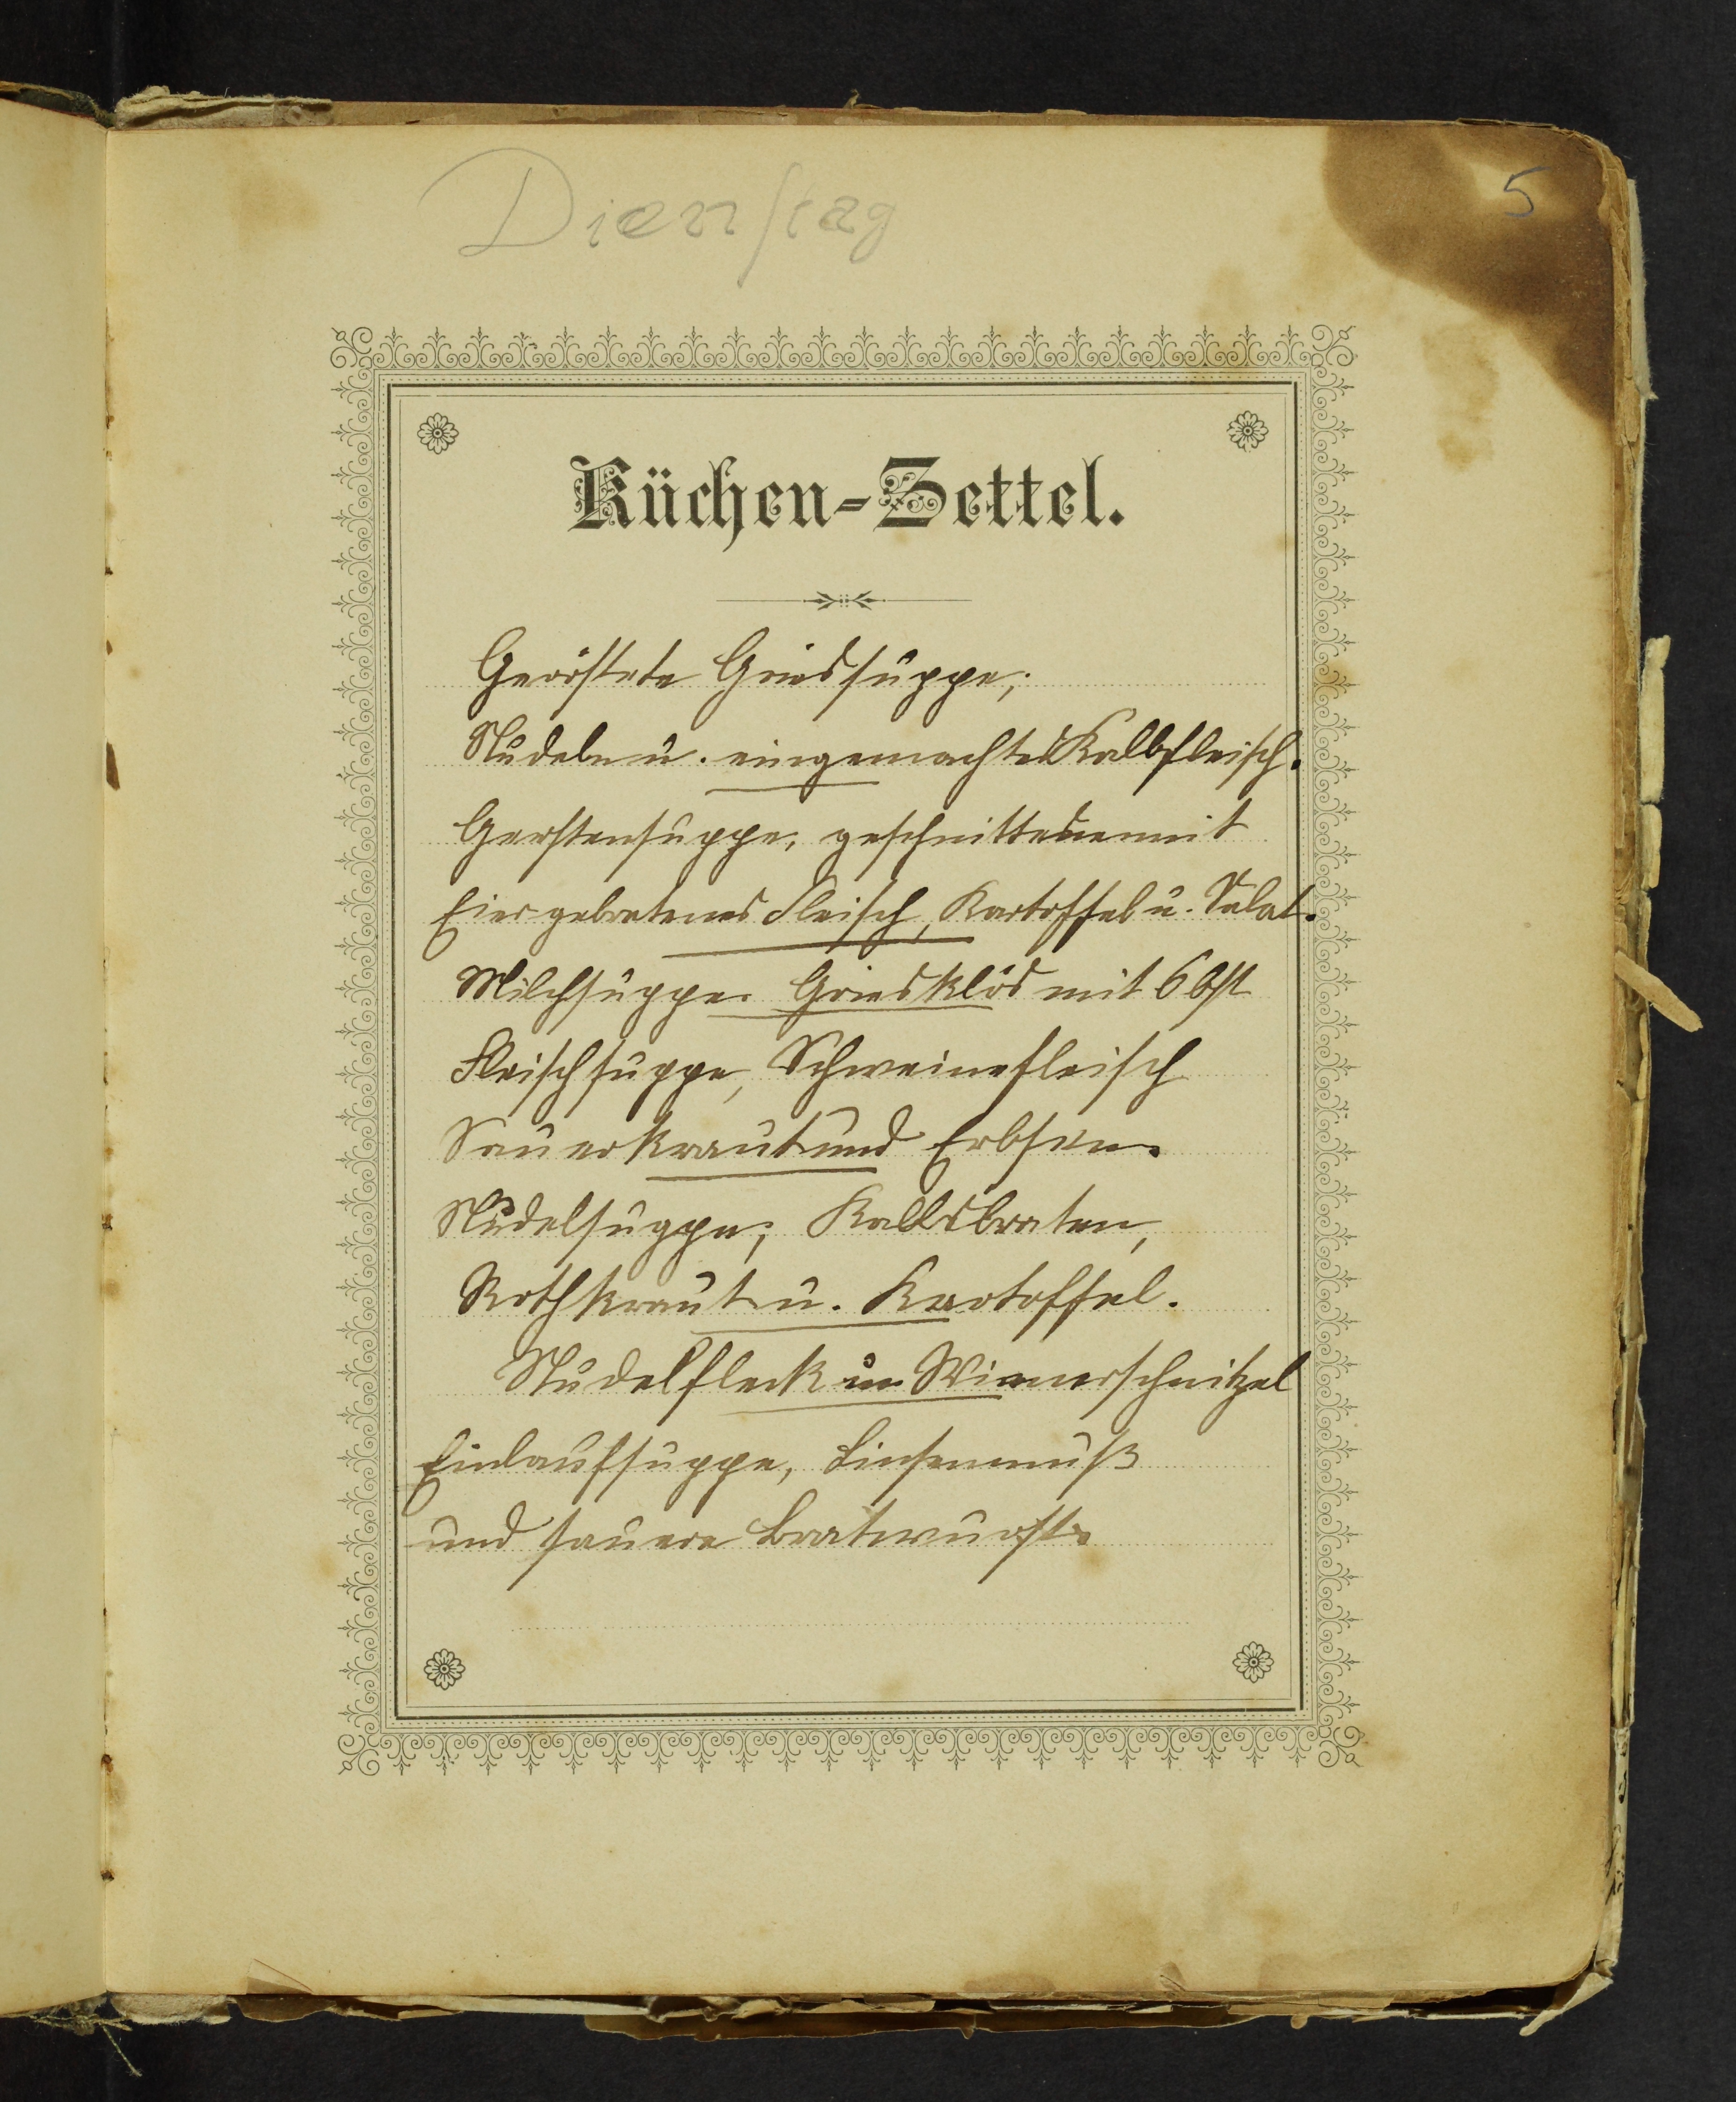 5
Dienstag
Küchen-Zettel.
Geröstete Griessuppe;
Nudeln u. eingemachtes Kalbfleisch.
Gerstensuppe, geschnittene mit
Eier gebratenes Fleisch, Kartoffel u. Salat.
Milchsuppe. Griesklös mit Obst
Fleischsuppe, Schweinefleisch
Sauerkraut und Erbsen.
Nudelsuppe; Kalbsbraten,
Rothkraut u. Kartoffel.
Nudelfleck u. Wienerschnitzel
Einlaufsuppe, Linsenmuß
und sauere Bratwurst.